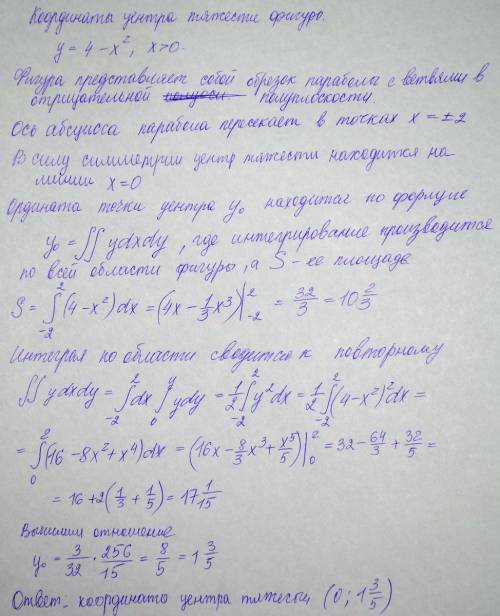 Координаты центра тяжести фигуры.
y = 4 - x², x>0.
Фигура представляет собой обрезок параболы с ветвями в
отрицательной полуплоскости.
Ось абсцисса парабола пересекает в точках x = ±2
В силу симметрии центр тяжести находится на
линии x=0
Ордината точки центра y₀ находится по формуле
y₀ = ∬ ydxdy, где интегрирование производится
по всей области фигуры, а S - ее площадь
S = ∫₋₂² (4-x²)dx = (4x - 1/3 x³)|₋₂² = 32/3 = 10 2/3
Интеграл по области сводится к повторному
∬ ydxdy = ∫₋₂² dx ∫₀^y ydy = 1/2 ∫₋₂² y²dx = 1/2 ∫₋₂² (4-x²)²dx =
= ∫₀² (16 - 8x² + x⁴)dx = (16x - 8/3 x³ + x⁵/5)|₀² = 32 - 64/3 + 32/5 =
= 16 + 2(1/3 + 1/5) = 17 1/15
Вычислим отношение
y₀ = 3/32 · 256/15 = 8/5 = 1 3/5
Ответ - координата центра тяжести (0; 1 3/5)